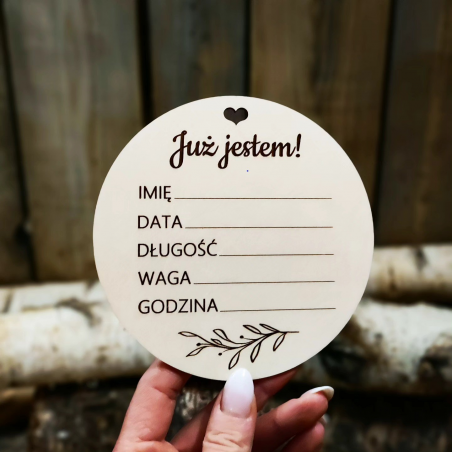 Już jestem!
IMIĘ
DATA
DŁUGOŚĆ
WAGA
GODZINA